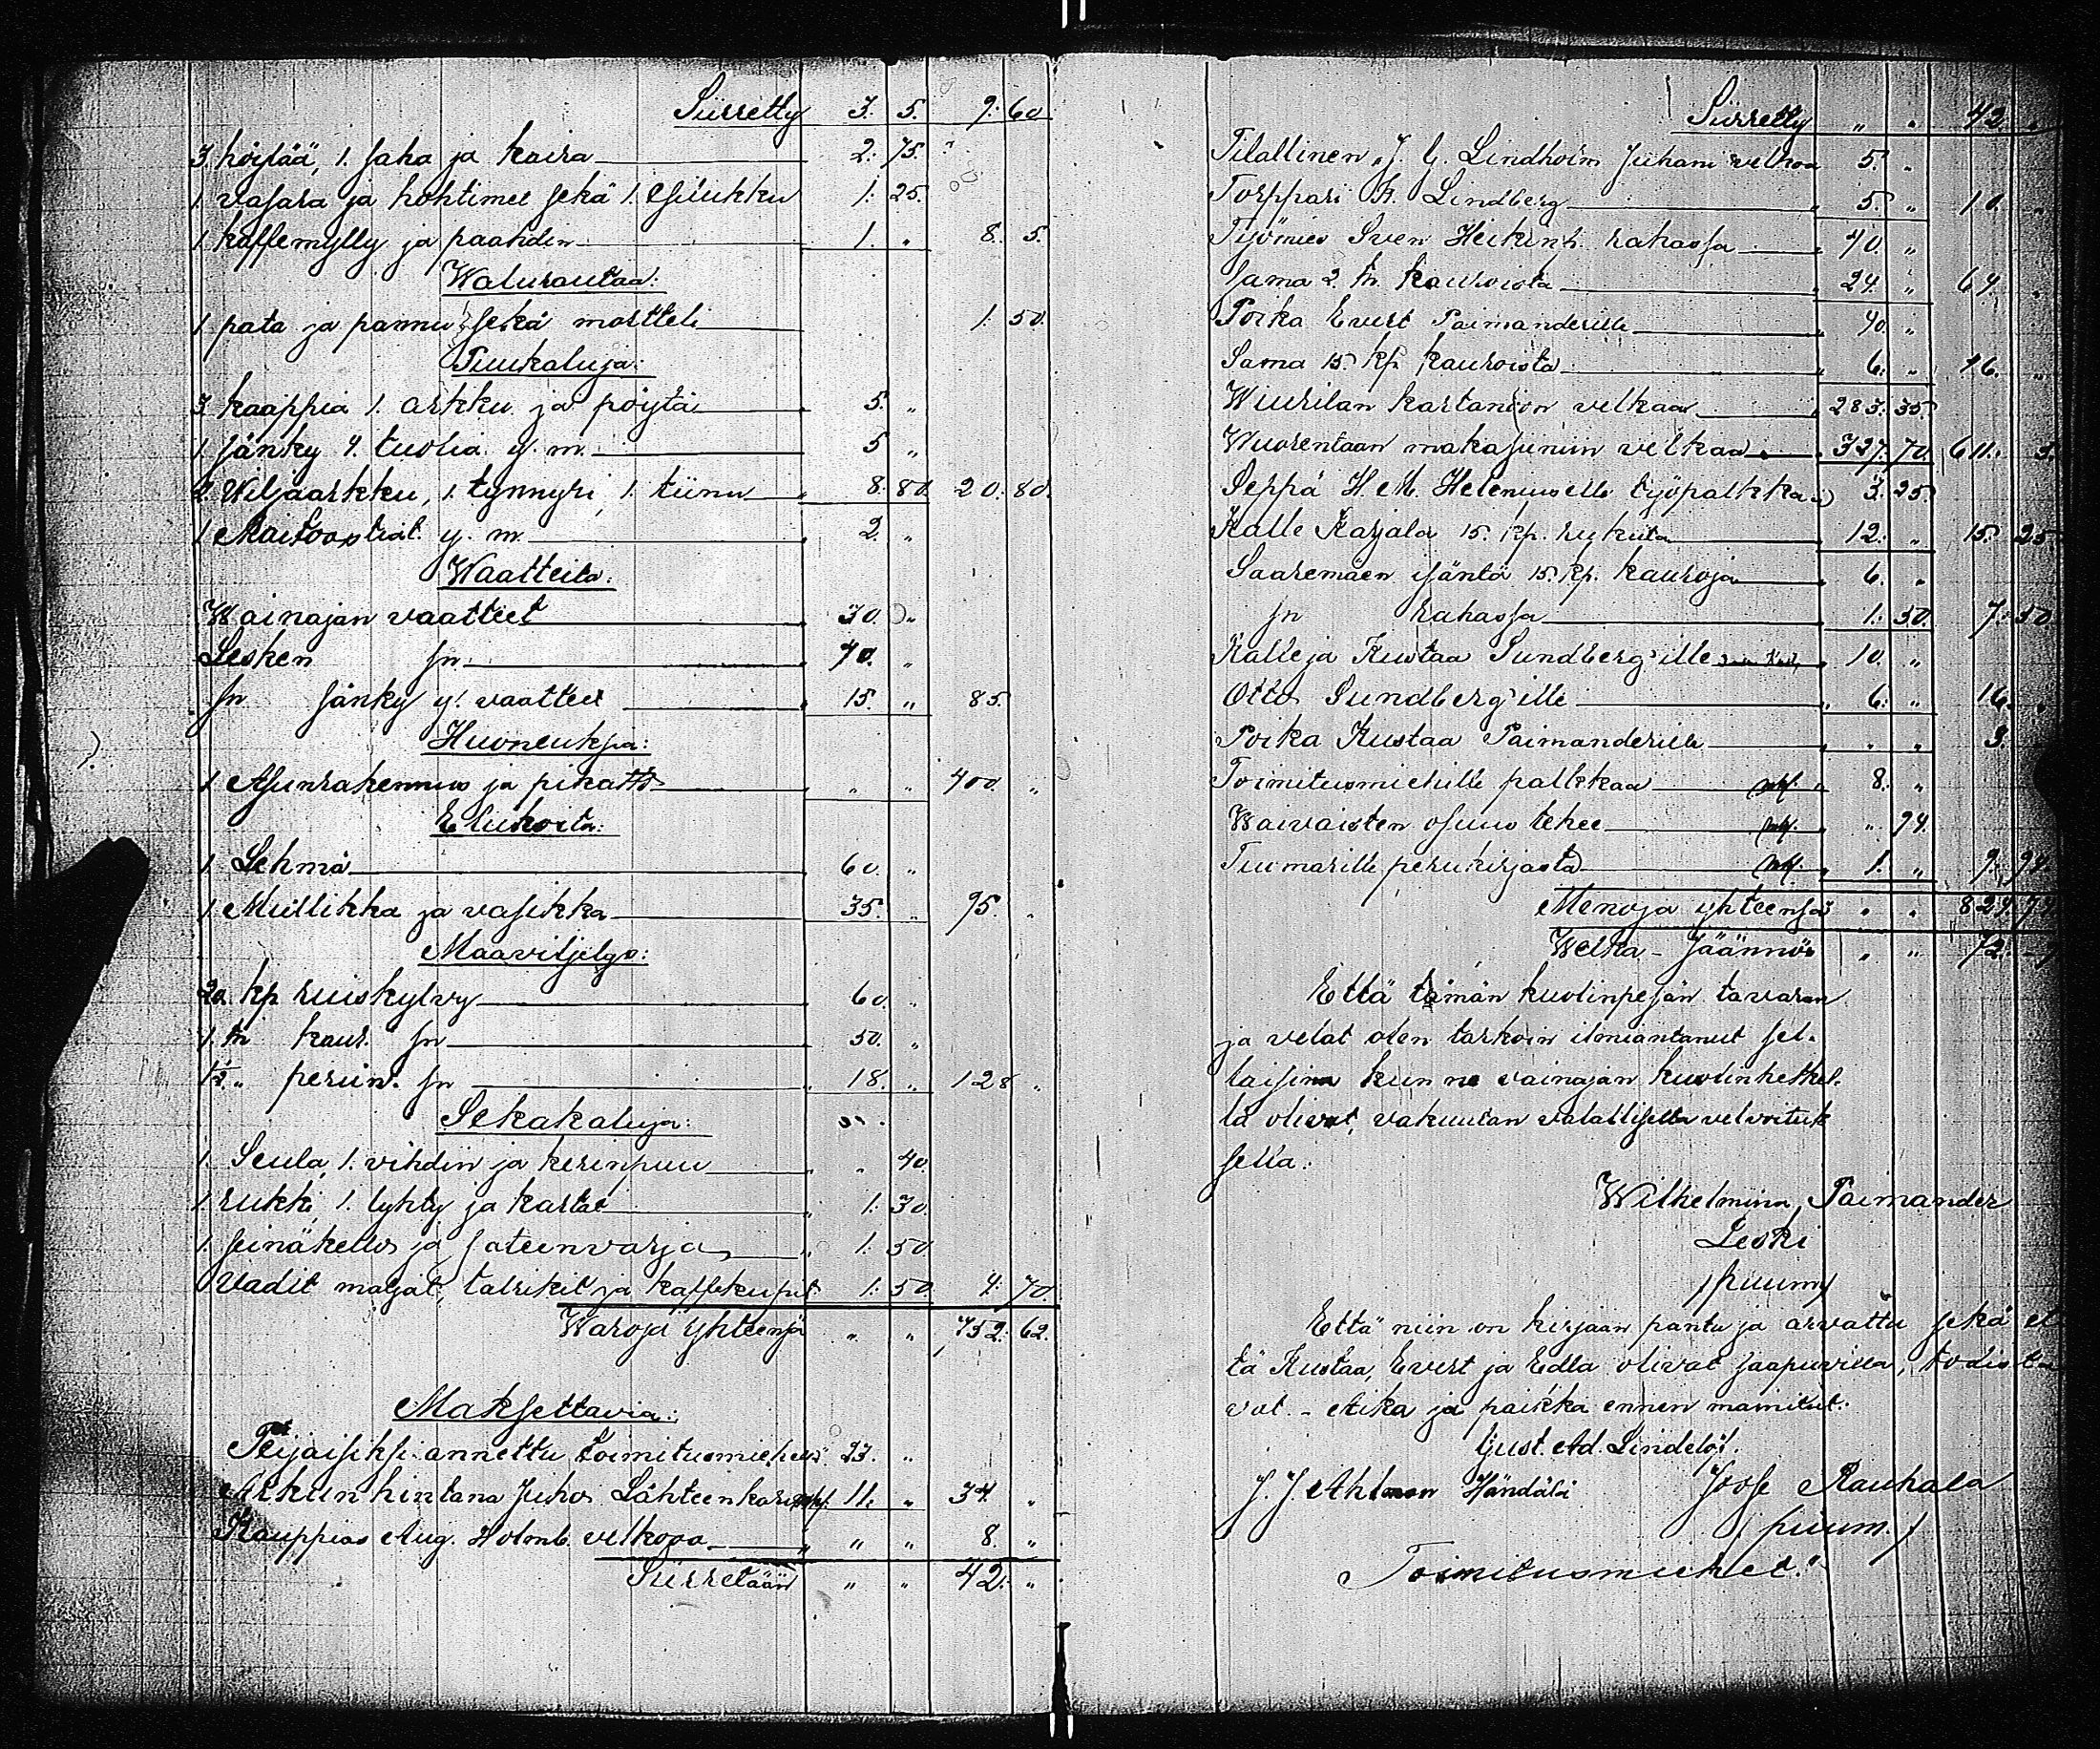 Siirretty 3. 5. 9: 60
3. höylää, 1. saha ja kaira 2: 75. "
1 vasara ja hohtimet sekä 1. 1: 25.
1 kaffemylly ja paahdin 1. " 8. 5.
Walurautaa:
1 pata ja pannu sekä mortteli 1. 50.
Puukaluja:
3. kaappia 1. arkku ja pöytä 5. "
1 sänky 4. tuolia y. m. 5 "
2. Wiljaarkku, 1. tynnyri, 1. tiinu 8. 80. 20. 80.
1 Maitoastiat. y. m. 2. "
Waatteita:
Wainajan vaatteet 30. "
Lesken sn 40. "
sn sänky y. vaatteet 15. " 85.
Huoneuksia:
1 Asunrakennus ja pikatto " " 400. "
Elukoita:
1. Lehmä 60. "
1. Mullikka ja vasikka 35. " 95. "
Maaviljelys:
20. kp ruiskylvy 60. "
1. tn kaur. sn 50. "
1/2. " perun. sn 18. " 128 "
Sekakaluja:
1. Seula, 1. vihdin ja kerinpuu " " 40.
1 rukki, 1. lyhty ja kartat " 1: 30.
1. seinäkello ja sateenvarjo " 1: 50
Vadit maljat, talrikit ja kaffekupit 1: 50. 4: 70.
Waroja yhteensä " " 752: 62.
Maksettavia:
Peijaisiksi annettu toimitusmiehelle 23. "
Arkun hintana Juho Lähteenkor 11. " 34. "
Kauppias Aug. Holmb. velkaa " " " 8. "
Siirretään " " 42. "
Siirretty " " 42. "
Tilallinen J. G. Lindholm Juhani velkaa 5. "
Torppari K. Lindberg " 5. " 10. "
Työmies Sven Heikinp. rahassa " 40. "
Sama 2. tn. kauroista " 24. " 64.
Poika Evert Paimanderille " 40. "
Sama 15. kp. kauroista " 6. " 46. "
Wiurilan kartanoon velkaa 283: 35.
Wuorentaan makasuniin velkaa 327: 70. 611. 5.
Seppä H. M. Heleniuselle työpalkkaa 3. 25.
Kalle Karjala 15. kp. rukiita 12. " 15. 25
Saaremäen isäntä 15. kp. kauroja 6. "
sn rahassa 1. 50. 7. 50
Kalle ja Kustaa Sundberg'ille 10. "
Otto Sundberg'ille " 6. " 16. "
Poika Kustaa Paimanderille " " " 3.
Toimitusmiehille palkkaa mk. " 8. "
Waivaisten osuus tekee mk. " " 94.
Tuomarille perukirjasta mk. " 1. " 9. 94.
Menoja yhteensä " " 824. 74
Welka-Jäännös " " 72.
Että tämän kuolinpesän tavaran
ja velat olen tarkoin ilmiantanut sel-
laisina kun ne vainajan kuolinhetkel-
lä olivat, vakuutan valallisella velvoituk
sella:
Wilhelmina Paimander
Leski
/puum/
Että niin on kirjaan pantu ja arvattu sekä et
tä Kustaa, Evert ja Edla olivat saapuvilla, todista
vat. - Aika ja paikka ennen mainitut.
Gust. Ad. Lindelöf.
J. J. Ahlman Händälä Joose Rauhala
/ puum. /
Toimitusmiehet."